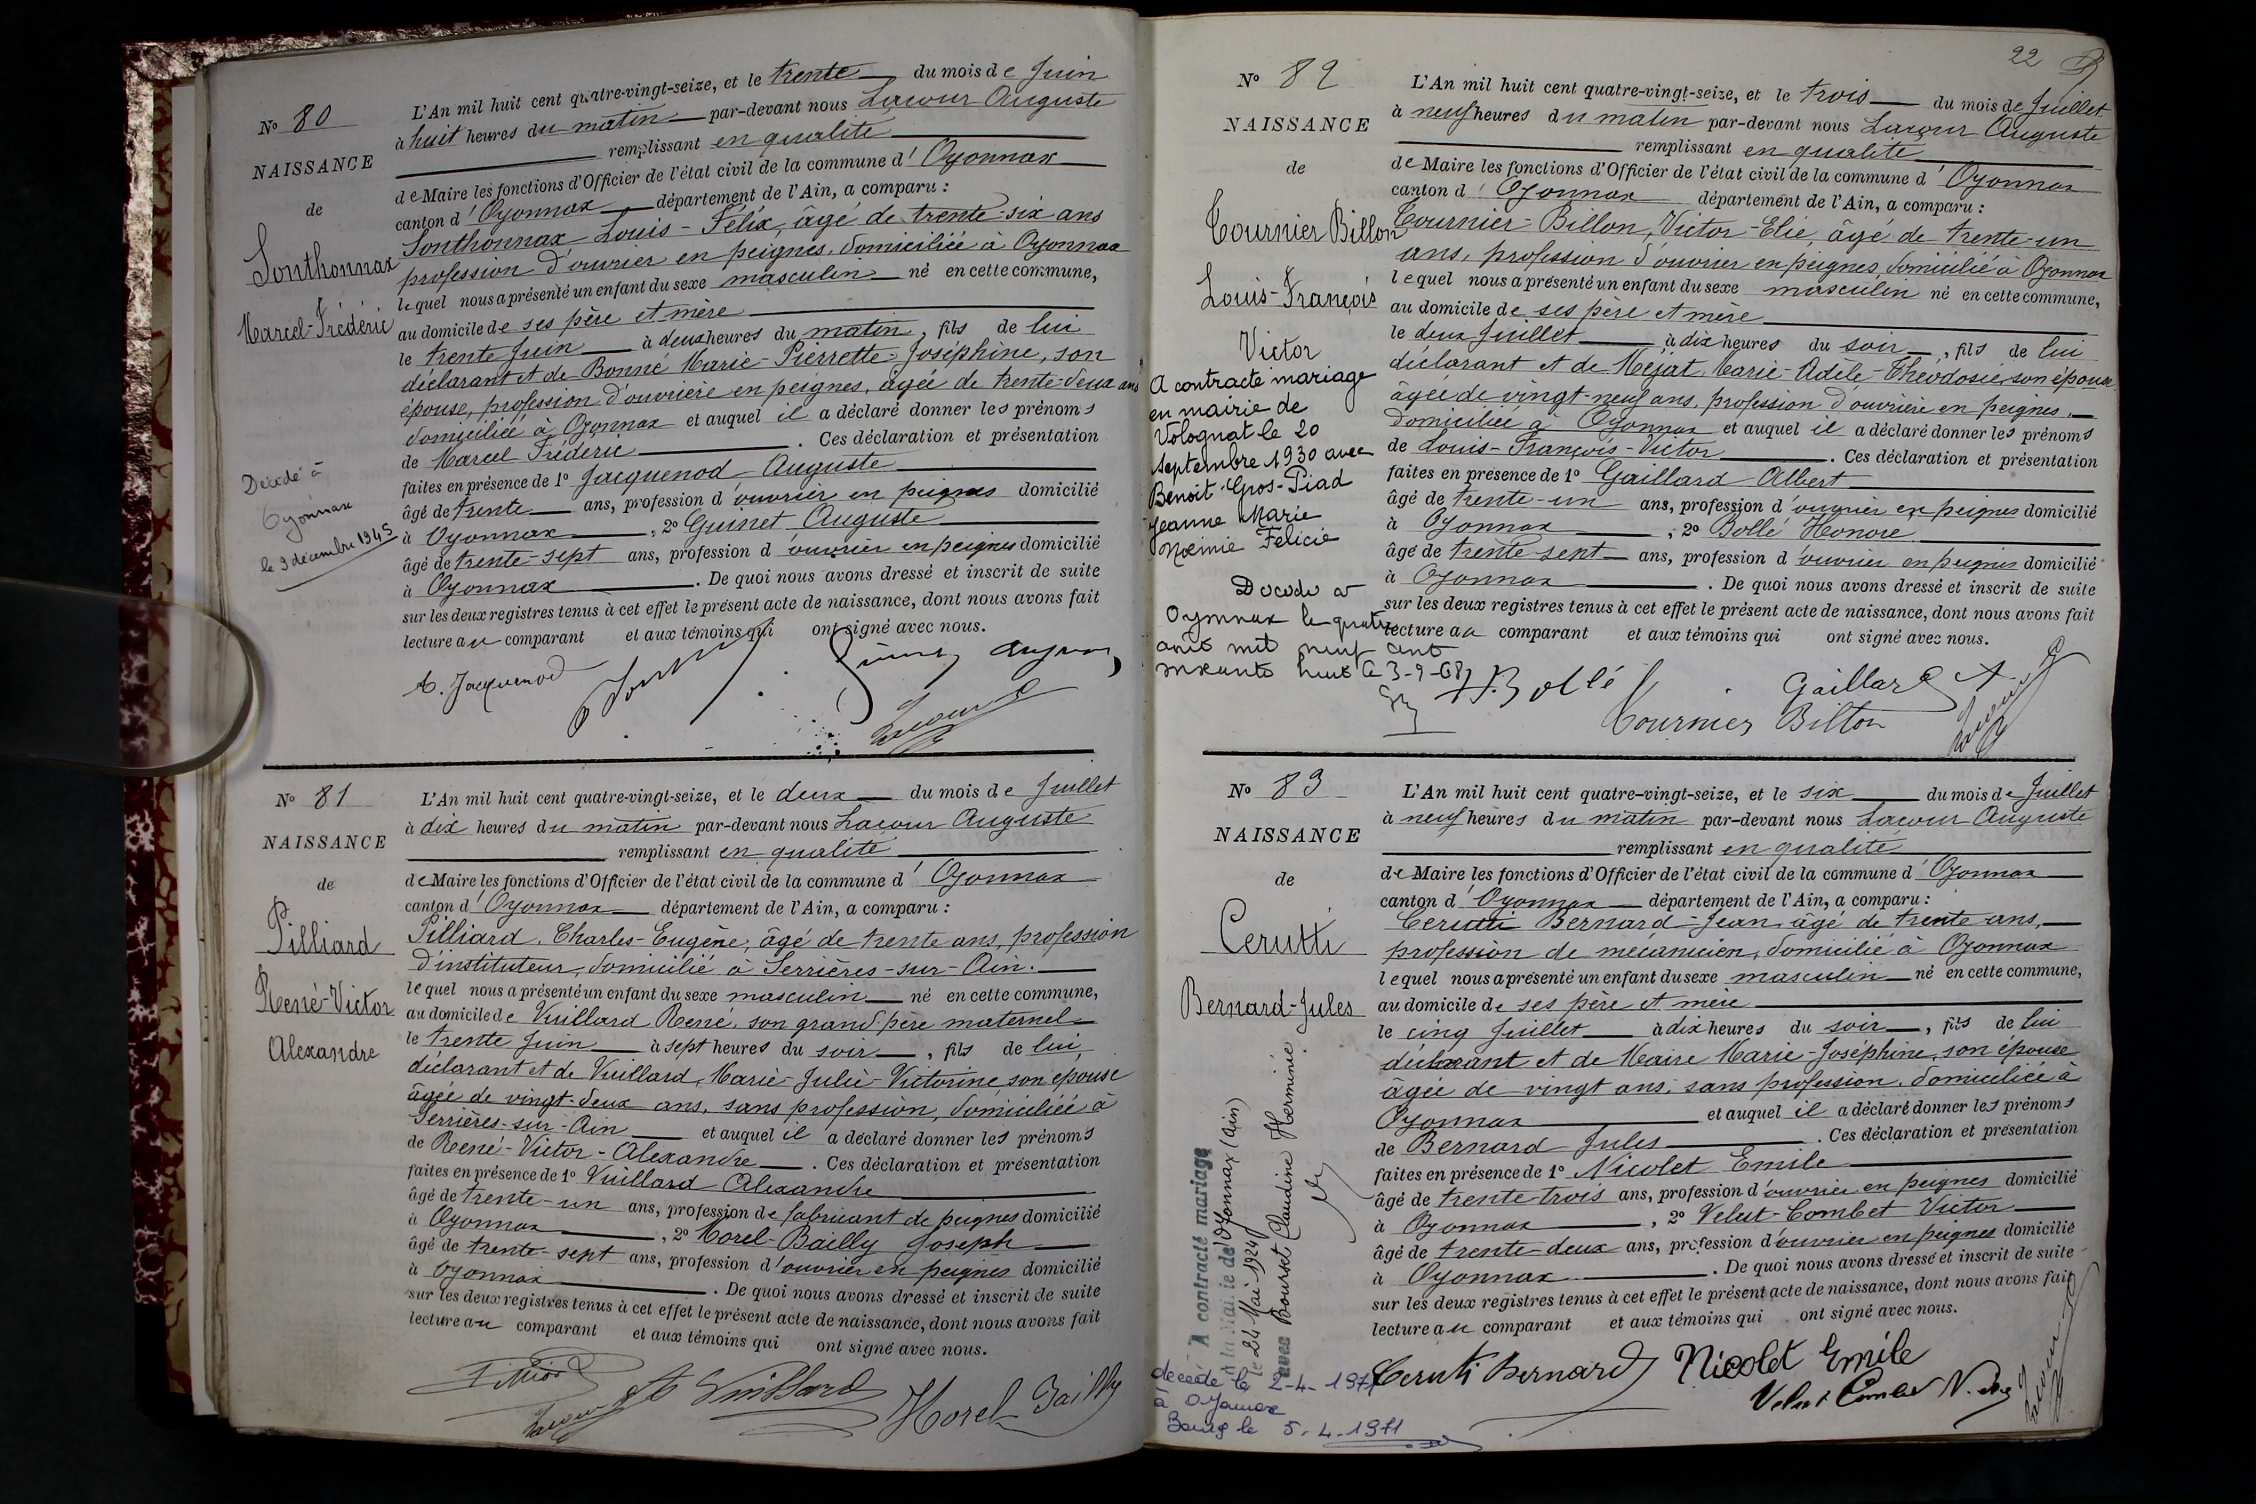 N° 80
NAISSANCE
de
Sonthonnax
Marcel-Frédéric
Décédé à
Oyonnax
le 9 décembre 1945
L'An mil huit cent quatre-vingt-seize, et le trente du mois de Juin
à huit heures du matin par-devant nous Lacour Auguste
remplissant en qualité
de Maire les fonctions d'Officier de l'état civil de la commune d'Oyonnax
canton d'Oyonnax département de l'Ain, a comparu :
Sonthonnax Louis-Félix, âgé de trente-six ans
profession d'ouvrier en peignes, domiciliée à Oyonnax
lequel nous a présenté un enfant du sexe masculin né en cette commune,
au domicile de ses père et mère
le trente Juin à deux heures du matin, fils de lui
déclarant et de Bonné Marie-Pierrette-Joséphine, son
épouse, profession d'ouvrière en peignes, âgée de trente-deux ans
domiciliée à Oyonnax et auquel il a déclaré donner les prénoms
de Marcel Frédéric. Ces déclaration et présentation
faites en présence de 1° Jacquenod Auguste
âgé de trente ans, profession d'ouvrier en peignes domicilié
à Oyonnax, 2° Guinet Auguste
âgé de trente-sept ans, profession d'ouvrier en peignes domicilié
à Oyonnax. De quoi nous avons dressé et inscrit de suite
sur les deux registres tenus à cet effet le présent acte de naissance, dont nous avons fait
lecture au comparant et aux témoins qui ont signé avec nous.
A. Jacquenod
Lacour
N° 81
NAISSANCE
de
Pilliard
René-Victor
Alexandre
L'An mil huit cent quatre-vingt-seize, et le deux du mois de Juillet
à dix heures du matin par-devant nous Lacour Auguste
remplissant en qualité
de Maire les fonctions d'Officier de l'état civil de la commune d'Oyonnax
canton d'Oyonnax département de l'Ain, a comparu :
Pilliard, Charles-Eugène, âgé de trente ans, profession
d'instituteur, domicilié à Serrières-sur-Ain.
lequel nous a présenté un enfant du sexe masculin né en cette commune,
au domicile de Vuillard René, son grand père maternel
le trente Juin à sept heures du soir, fils de lui
déclarant et de Vuillard, Marie-Julie-Victorine son épouse
âgée de vingt-deux ans, sans profession, domiciliée à
Serrières-sur-Ain et auquel il a déclaré donner les prénoms
de René-Victor-Alexandre. Ces déclaration et présentation
faites en présence de 1° Vuillard Alexandre
âgé de trente-un ans, profession de fabricant de peignes domicilié
à Oyonnax, 2° Morel-Bailly Joseph
âgé de trente-sept ans, profession d'ouvrier en peignes domicilié
à Oyonnax. De quoi nous avons dressé et inscrit de suite
sur les deux registres tenus à cet effet le présent acte de naissance, dont nous avons fait
lecture au comparant et aux témoins qui ont signé avec nous.
A Vuillard
Morel Bailly
Lacour
22
N° 82
NAISSANCE
de
Tournier Billon
Louis-François
Victor
A contracté mariage
en mairie de
Volognat le 20
septembre 1930 avec
Benoit-Gros-Piad
Jeanne Marie
Noémie Félicie
Décédé à
Oyonnax le quatre
août mil neuf cent
soixante huit le 3-9-68
L'An mil huit cent quatre-vingt-seize, et le trois du mois de Juillet
à neuf heures du matin par-devant nous Lacour Auguste
remplissant en qualité
de Maire les fonctions d'Officier de l'état civil de la commune d'Oyonnax
canton d'Oyonnax département de l'Ain, a comparu :
Tournier-Billon, Victor-Elie, âgé de trente-un
ans, profession d'ouvrier en peignes, domicilié à Oyonnax
lequel nous a présenté un enfant du sexe masculin né en cette commune,
au domicile de ses père et mère
le deux Juillet à dix heures du soir, fils de lui
déclarant et de Méjat Marie-Adèle-Théodosie son épouse
âgée de vingt-neuf ans, profession d'ouvrière en peignes,
domiciliée à Oyonnax et auquel il a déclaré donner les prénoms
de Louis-François-Victor. Ces déclaration et présentation
faites en présence de 1° Gaillard Albert
âgé de trente-un ans, profession d'ouvrier en peignes domicilié
à Oyonnax, 2° Bollé Honoré
âgé de trente-sept ans, profession d'ouvrier en peignes domicilié
à Oyonnax. De quoi nous avons dressé et inscrit de suite
sur les deux registres tenus à cet effet le présent acte de naissance, dont nous avons fait
lecture au comparant et aux témoins qui ont signé avec nous.
H Bollé
Gaillard A
Tournier Billon
Lacour
N° 83
NAISSANCE
de
Cerutti
Bernard-Jules
A contracté mariage
à la Mairie de Oyonnax (Ain)
le 24 Mai 1924
avec Bourset Claudine Herminie
décédé le 2-4-1971
à Oyonnax
Bourg le 5.4.1971
L'An mil huit cent quatre-vingt-seize, et le six du mois de Juillet
à neuf heures du matin par-devant nous Lacour Auguste
remplissant en qualité
de Maire les fonctions d'Officier de l'état civil de la commune d'Oyonnax
canton d'Oyonnax département de l'Ain, a comparu :
Cerutti Bernard-Jean, âgé de trente ans,
profession de mécanicien, domicilié à Oyonnax
lequel nous a présenté un enfant du sexe masculin né en cette commune,
au domicile de ses père et mère
le cinq Juillet à dix heures du soir, fils de lui
déclarant et de Maire Marie-Joséphine, son épouse
âgée de vingt ans, sans profession, domiciliée à
Oyonnax et auquel il a déclaré donner les prénoms
de Bernard Jules. Ces déclaration et présentation
faites en présence de 1° Nicolet Emile
âgé de trente-trois ans, profession d'ouvrier en peignes domicilié
à Oyonnax, 2° Velut-Combet Victor
âgé de trente-deux ans, profession d'ouvrier en peignes domicilié
à Oyonnax. De quoi nous avons dressé et inscrit de suite
sur les deux registres tenus à cet effet le présent acte de naissance, dont nous avons fait
lecture au comparant et aux témoins qui ont signé avec nous.
Cerutti Bernard
Nicolet Emile
Velut Combet
Lacour